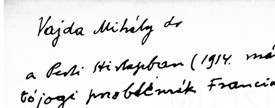 Vajda Mihály dr
a Pesti Hirlapban (1914. má
tójogi problémák Francia